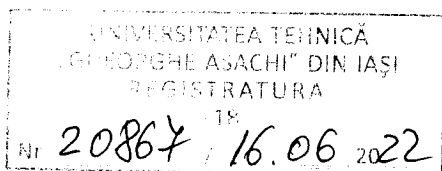 UNIVERSITATEA TEHNICĂ
„GHEORGHE ASACHI" DIN IAȘI
REGISTRATURA
18
Nr 20867 / 16.06 2022